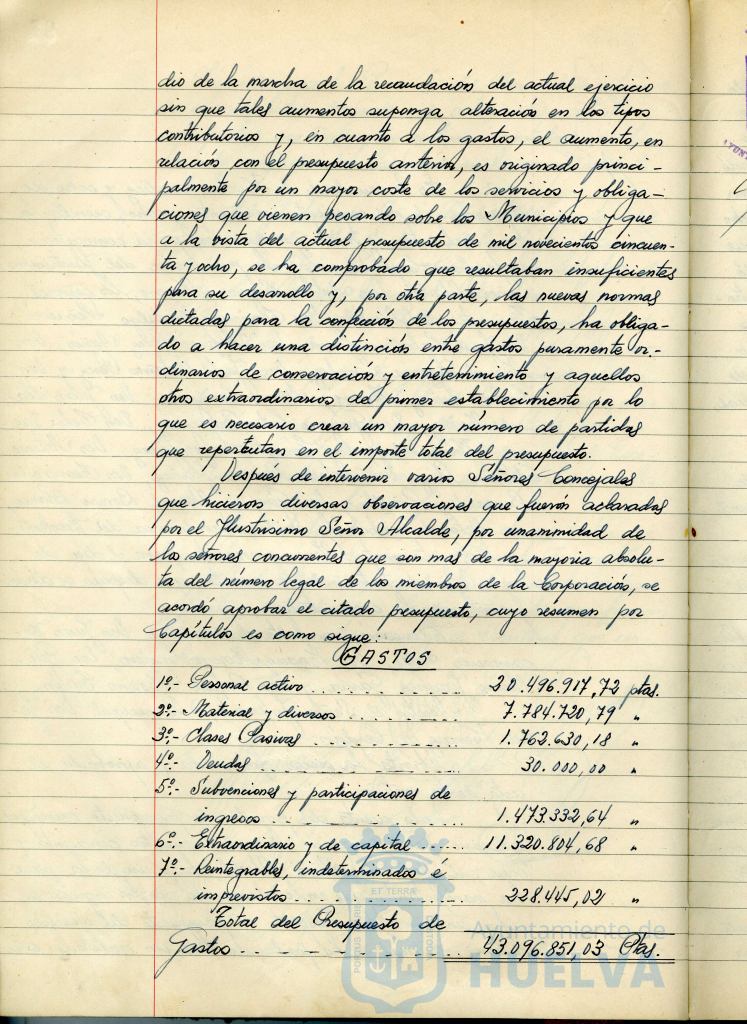 dio de la marcha de la recaudación del actual ejercicio
sin que tales aumentos suponga alteración en los tipos
contributorios y, en cuanto a los gastos, el aumento, en
relación con el presupuesto anterior, es originado princi-
palmente por un mayor coste de los servicios y obliga-
ciones que vienen pesando sobre los Municipios y que
a la vista del actual presupuesto de mil novecientos cincuen-
ta y ocho, se ha comprobado que resultaban insuficientes
para su desarrollo y, por otra parte, las nuevas normas
dictadas para la confección de los presupuestos, ha obliga-
do a hacer una distinción entre gastos puramente or-
dinarios de conservación y entretenimiento y aquellos
otros extraordinarios de primer establecimiento por lo
que es necesario crear un mayor número de partidas
que repercutan en el importe total del presupuesto.
Después de intervenir varios Señores Concejales
que hicieron diversas observaciones que fueron aclaradas
por el Ilustrisimo Señor Alcalde, por unanimidad de
los señores concurrentes que son mas de la mayoria absolu-
ta del número legal de los miembros de la Corporación, se
acordó aprobar el citado presupuesto, cuyo resumen por
Capítulos es como sigue:
GASTOS
1º.- Personal activo ............ 20.496.917,72 ptas.
2º.- Material y diversos ............ 7.784.720,79 "
3º.- Clases Pasivas ............ 1.762.630,18 "
4º.- Deudas ............ 30.000,00 "
5º.- Subvenciones y participaciones de
ingresos ............ 1.473.332,64 "
6º.- Extraordinario y de capital ...... 11.320.804,68 "
7º.- Reintegrables, indeterminados é
imprevistos ............ 228.445,02 "
Total del Presupuesto de
Gastos ............ 43.096.851,03 Ptas.
ET TERRA
Ayuntamiento de
HUELVA